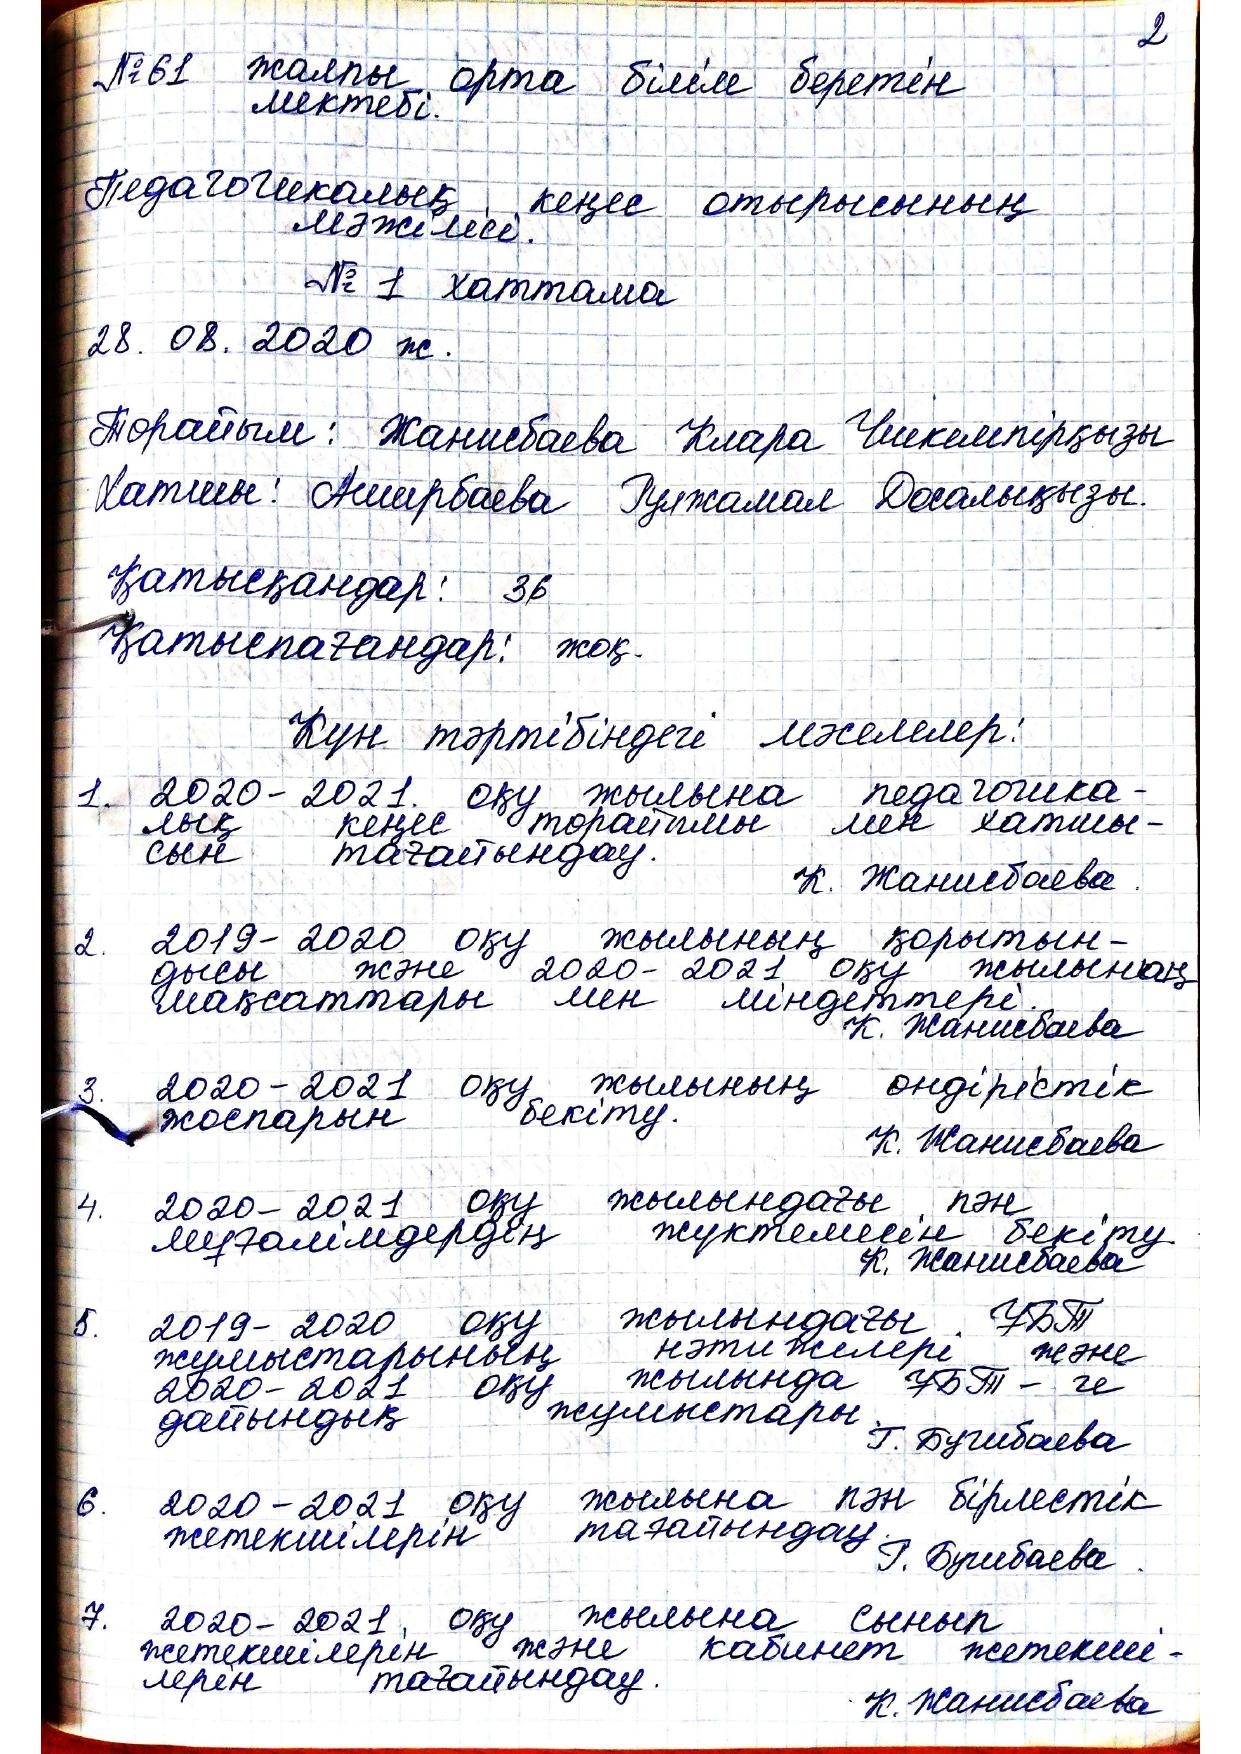 2
№61 жалпы орта білім беретін
мектебі.
Педагогикалық кеңес отырысының
мәжілісі.
№ 1 хаттама
28. 08. 2020 ж.
Төрайым: Жанисбаева Клара
Хатшы: Аширбаева Гулжамал Досалықызы.
Қатысқандар: 36
Қатыспағандар: жоқ.
Күн тәртібіндегі мәселелер:
1. 2020-2021. оқу жылына педагогика-
лық кеңес төрайымы мен хатшы-
сын тағайындау.
К. Жанисбаева.
2. 2019-2020 оқу жылының қорытын-
дысы және 2020-2021 оқу жылының
мақсаттары мен міндеттері.
К. Жанисбаева
3. 2020-2021 оқу жылының өндірістік
жоспарын бекіту.
К. Жанисбаева
4. 2020-2021 оқу жылындағы пән
мұғалімдердің жүктемесін бекіту.
К. Жанисбаева
5. 2019-2020 оқу жылындағы ҰБТ
жұмыстарының нәтижелері және
2020-2021 оқу жылында ҰБТ-ге
дайындық жұмыстары.
Г. Бугибаева
6. 2020-2021 оқу жылына пән бірлестік
жетекшілерін тағайындау.
Г. Бугибаева.
7. 2020-2021 оқу жылына сынып
жетекшілерін және кабинет жетекші-
лерін тағайындау.
К. Жанисбаева